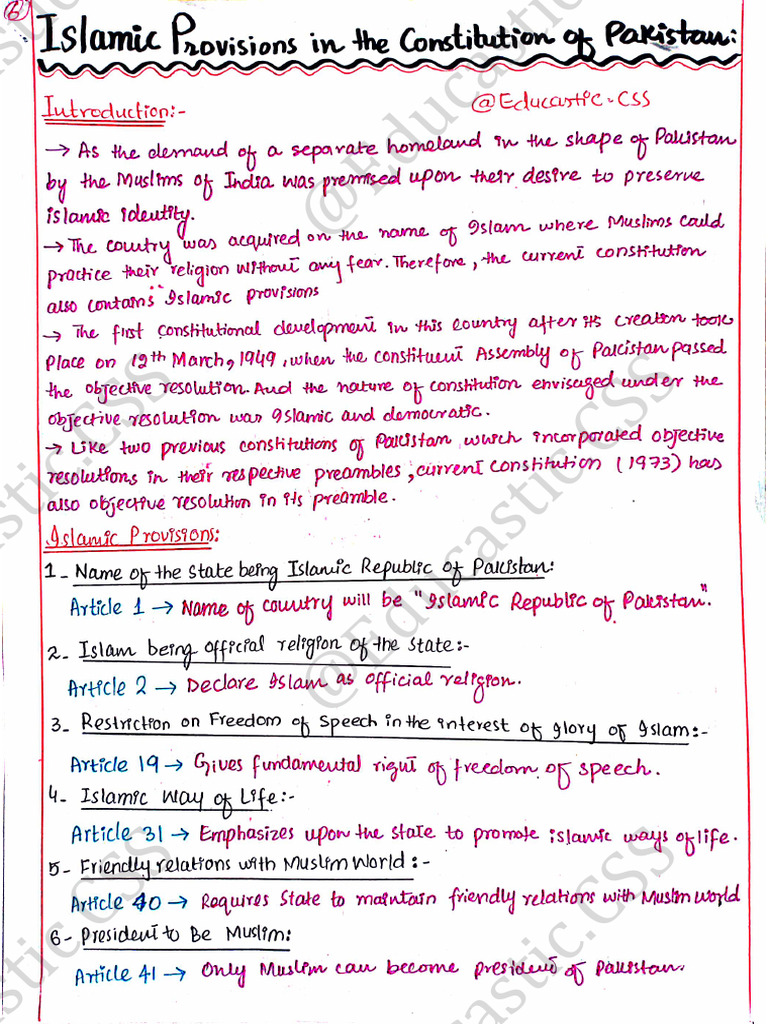 6
Islamic Provisions in the Constitution of Pakistan:
Introduction:-
@Educastic.CSS
→ As the demand of a separate homeland in the shape of Pakistan
by the Muslims of India was premised upon their desire to preserve
islamic identity.
→ The country was acquired on the name of Islam where Muslims could
practice their religion without any fear. Therefore, the current constitution
also contains Islamic provisions
→ The first constitutional development in this country after its creation took
Place on 12th March, 1949, when the constituent Assembly of Pakistan passed
the objective resolution. And the nature of constitution envisaged under the
objective resolution was Islamic and democratic.
→ Like two previous constitutions of Pakistan which incorporated objective
resolutions in their respective preambles, current constitution (1973) has
also objective resolution in its preamble.
Islamic Provisions:
1- Name of the state being Islamic Republic of Pakistan:
Article 1 → Name of country will be "Islamic Republic of Pakistan".
2- Islam being official religion of the state:-
Article 2 → Declare Islam as official religion.
3- Restriction on Freedom of Speech in the interest of glory of Islam:-
Article 19 → Gives fundamental right of freedom of speech.
4- Islamic Way of Life:-
Article 31 → Emphasizes upon the state to promote islamic ways of life.
5- Friendly relations with Muslim World:-
Article 40 → Requires State to maintain friendly relations with Muslim World
6- President to Be Muslim:
Article 41 → Only Muslim can become president of Pakistan.
@Educastic.CSS
@Educastic.CSS